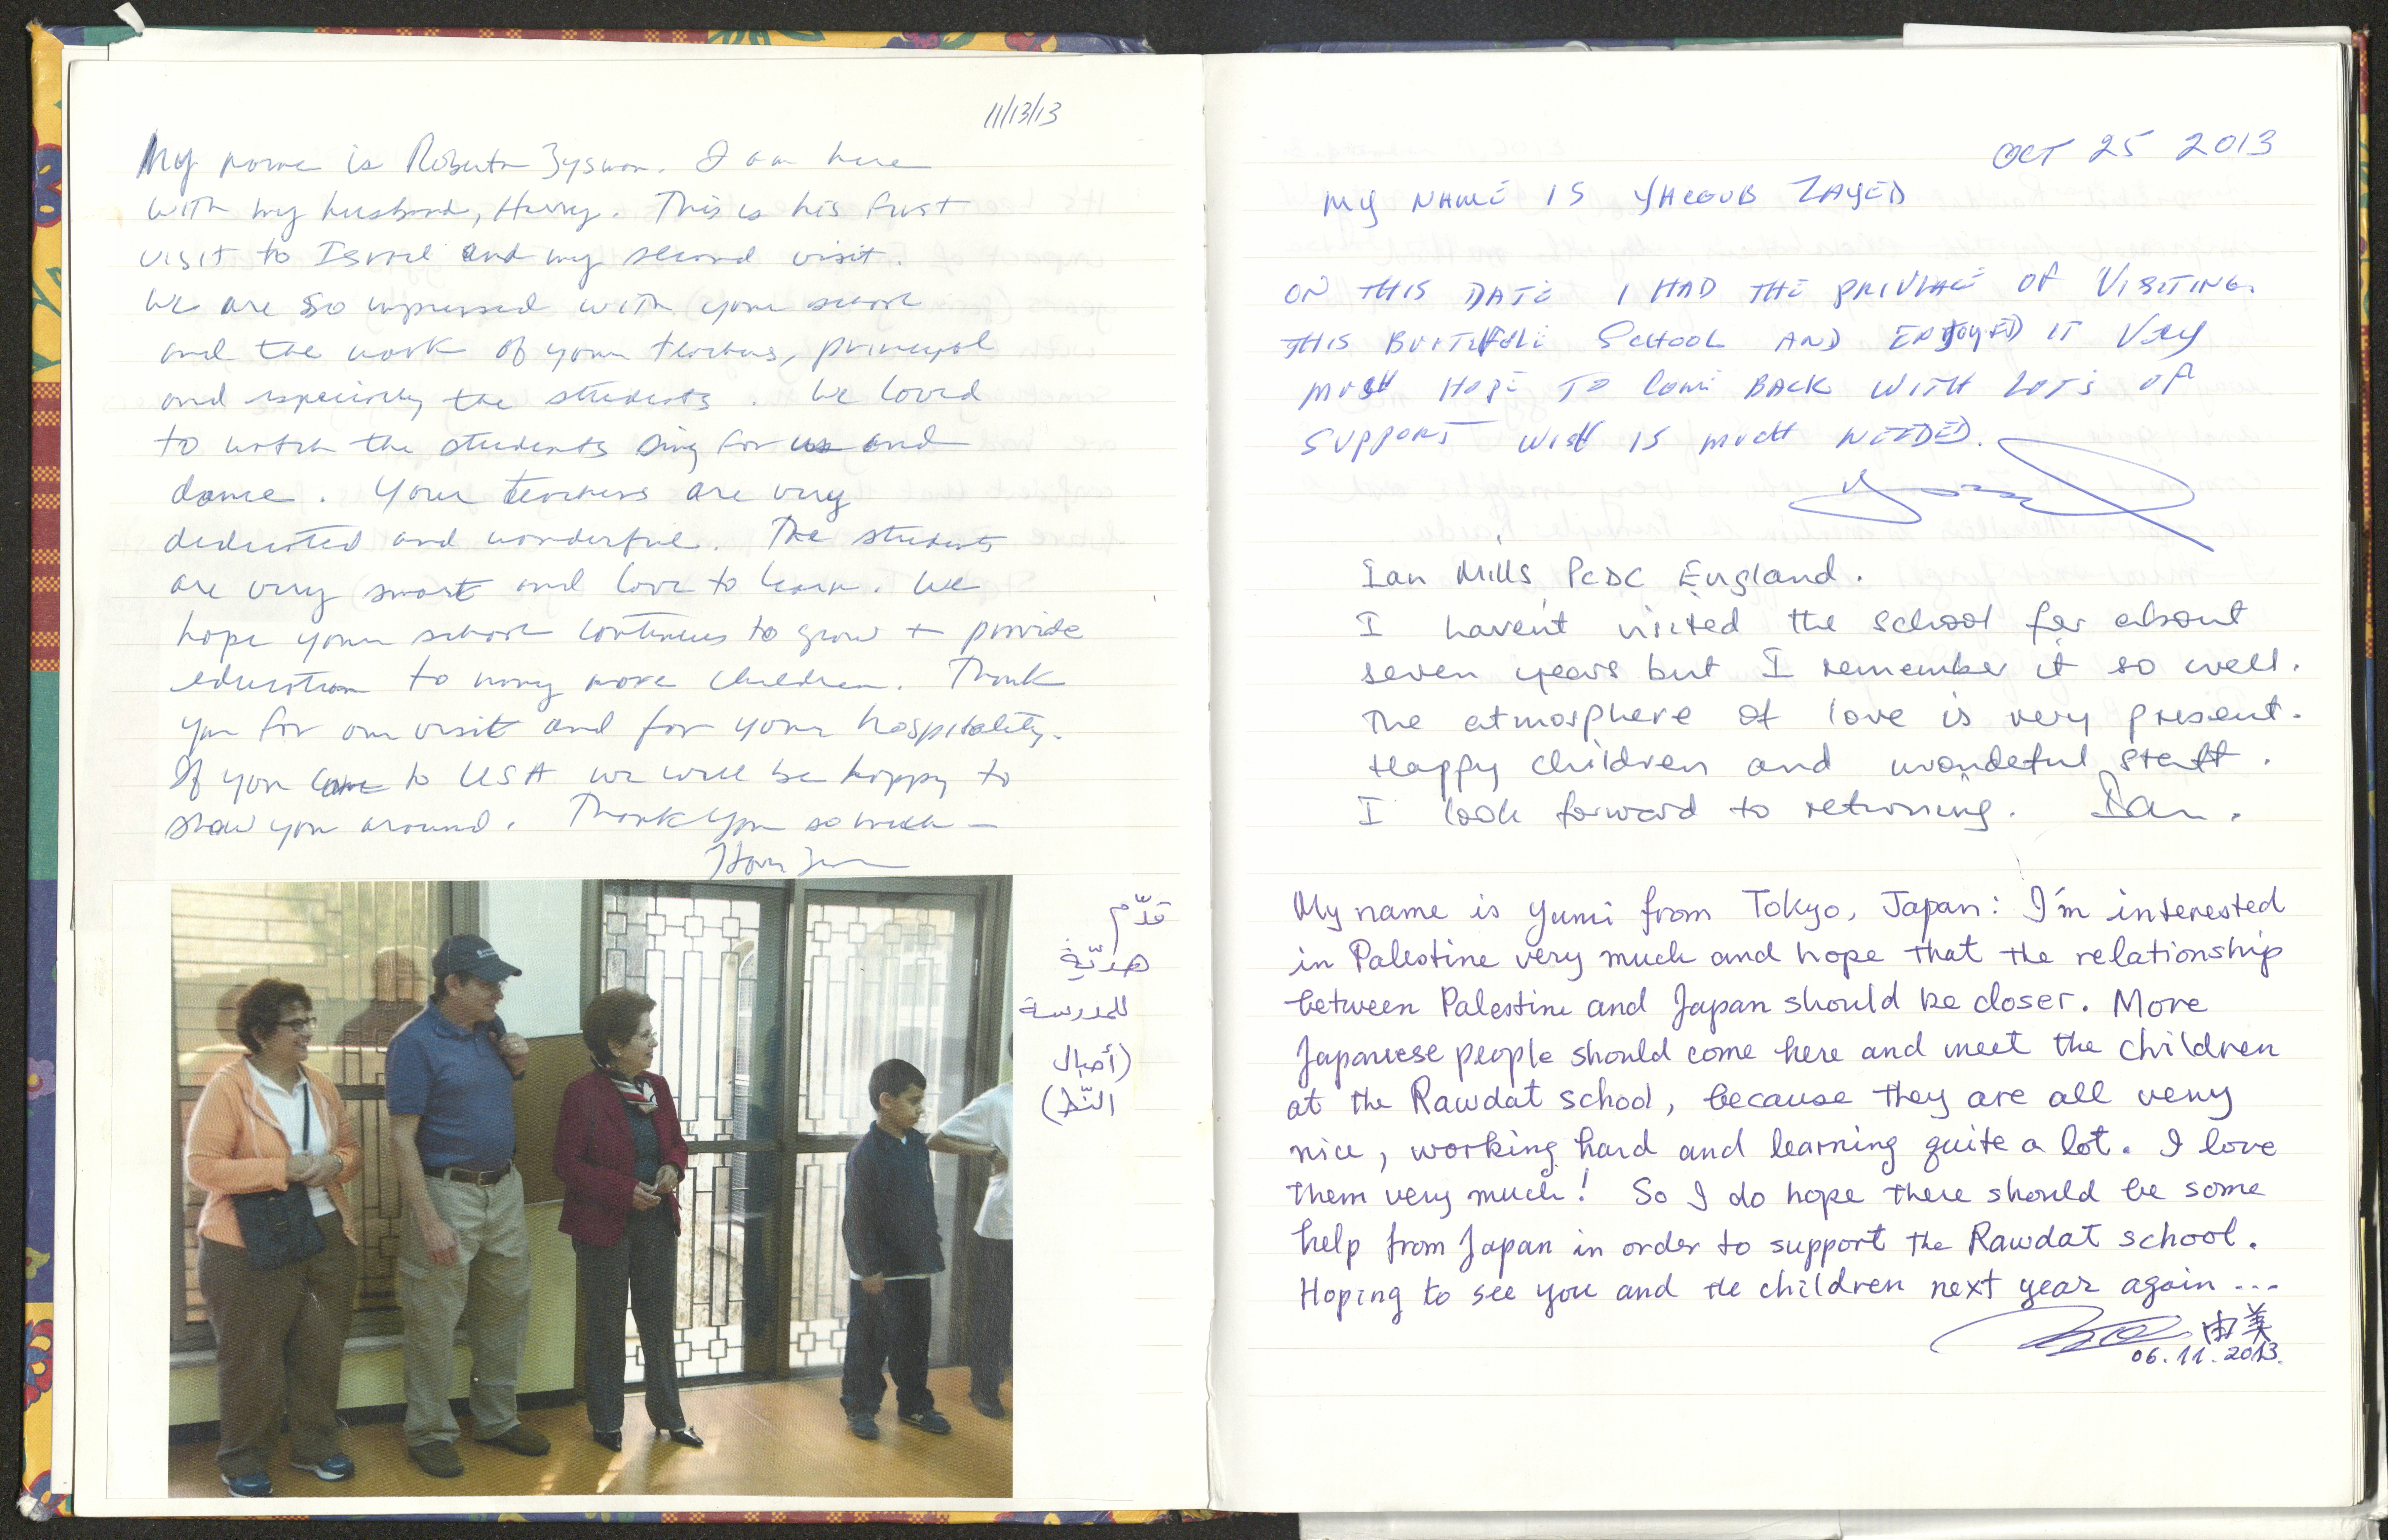 11/13/13
My name is Roberta Zysman. I am here
with my husband, Harry. This is his first
visit to Israel and my second visit.
We are so impressed with your school
and the work of your teachers, principal
and especially the students. We loved
to watch the students sing for us and
dance. Your teachers are very
dedicated and wonderful. The students
are very smart and love to learn. We
hope your school continues to grow + provide
education to many more children. Thank
you for our visit and for your hospitality.
If you come to USA we will be happy to
show you around. Thank you so much —
قدّم
هديّة
للمدرسة
(أحبال
النّط)
OCT 25 2013
MY NAME IS YACOUB ZAYED
ON THIS DATE I HAD THE PRIVLAGE OF VISITING
THIS BUETIFULL SCHOOL AND ENJOYED IT VERY
MUSH HOPE TO COME BACK WITH LOTS OF
SUPPORT WISH IS MUCH NEEDED.
Ian Mills PCDC England.
I haven't visited the school for about
seven years but I remember it so well.
The atmosphere of love is very present.
Happy children and wondeful staff.
I look forward to returning. Ian.
My name is Yumi from Tokyo, Japan: I'm interested
in Palestine very much and hope that the relationship
between Palestine and Japan should be closer. More
Japanese people should come here and meet the children
at the Rawdat school, because they are all veny
nice, working hard and learning quite a lot. I love
them very much! So I do hope there should be some
help from Japan in order to support the Rawdat school.
Hoping to see you and the children next year again ...
由美
06.11.2013.